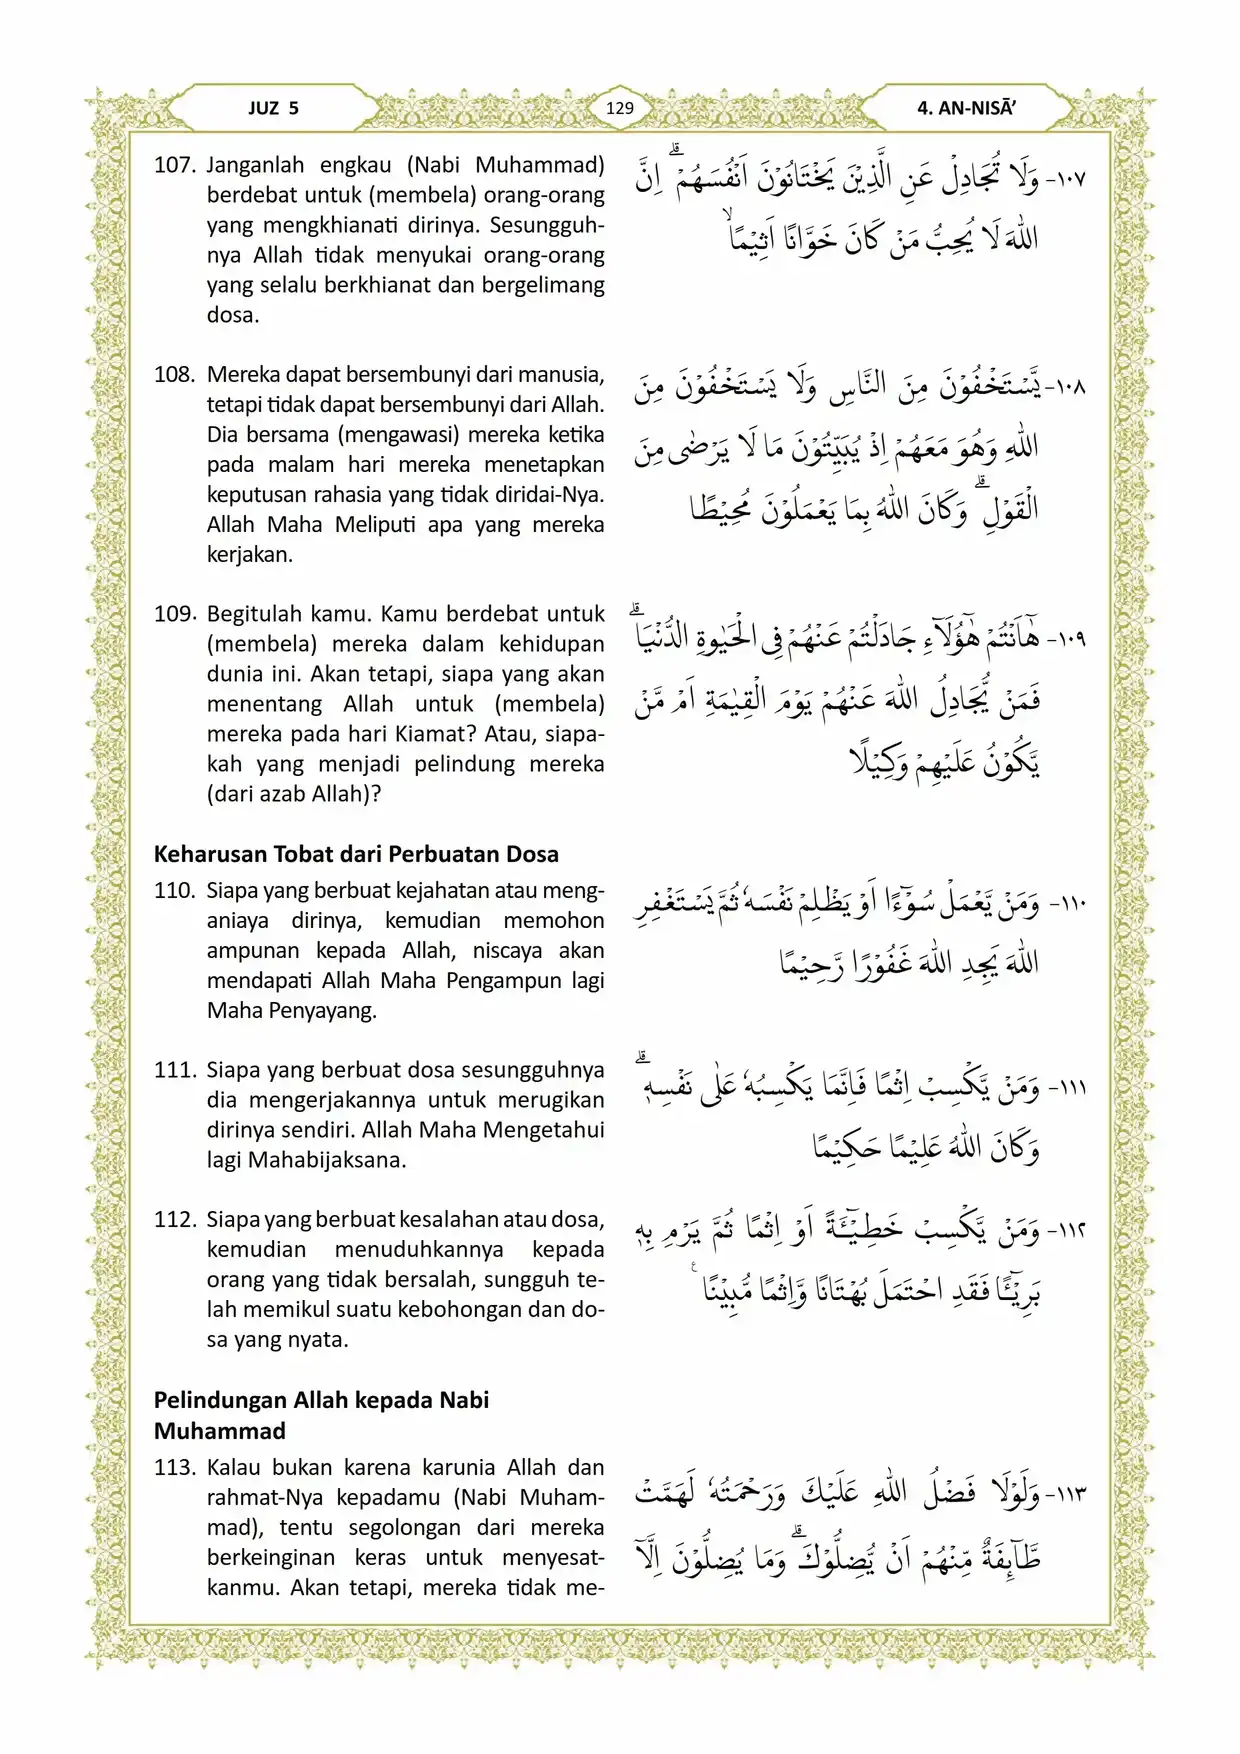 JUZ 5
129
4. AN-NISĀ’
107. Janganlah engkau (Nabi Muhammad)
berdebat untuk (membela) orang-orang
yang mengkhianati dirinya. Sesungguh-
nya Allah tidak menyukai orang-orang
yang selalu berkhianat dan bergelimang
dosa.
١٠٧- وَلَا تُجَادِلْ عَنِ الَّذِيْنَ يَخْتَانُوْنَ اَنْفُسَهُمْ ۗ اِنَّ
اللّٰهَ لَا يُحِبُّ مَنْ كَانَ خَوَّانًا اَثِيْمًاۙ
108. Mereka dapat bersembunyi dari manusia,
tetapi tidak dapat bersembunyi dari Allah.
Dia bersama (mengawasi) mereka ketika
pada malam hari mereka menetapkan
keputusan rahasia yang tidak diridai-Nya.
Allah Maha Meliputi apa yang mereka
kerjakan.
١٠٨- يَّسْتَخْفُوْنَ مِنَ النَّاسِ وَلَا يَسْتَخْفُوْنَ مِنَ
اللّٰهِ وَهُوَ مَعَهُمْ اِذْ يُبَيِّتُوْنَ مَا لَا يَرْضٰى مِنَ
الْقَوْلِ ۗ وَكَانَ اللّٰهُ بِمَا يَعْمَلُوْنَ مُحِيْطًا
109. Begitulah kamu. Kamu berdebat untuk
(membela) mereka dalam kehidupan
dunia ini. Akan tetapi, siapa yang akan
menentang Allah untuk (membela)
mereka pada hari Kiamat? Atau, siapa-
kah yang menjadi pelindung mereka
(dari azab Allah)?
١٠٩- هٰٓاَنْتُمْ هٰٓؤُلَاۤءِ جَادَلْتُمْ عَنْهُمْ فِى الْحَيٰوةِ الدُّنْيَاۗ
فَمَنْ يُّجَادِلُ اللّٰهَ عَنْهُمْ يَوْمَ الْقِيٰمَةِ اَمْ مَّنْ
يَّكُوْنُ عَلَيْهِمْ وَكِيْلًا
Keharusan Tobat dari Perbuatan Dosa
110. Siapa yang berbuat kejahatan atau meng-
aniaya dirinya, kemudian memohon
ampunan kepada Allah, niscaya akan
mendapati Allah Maha Pengampun lagi
Maha Penyayang.
١١٠- وَمَنْ يَّعْمَلْ سُوْۤءًا اَوْ يَظْلِمْ نَفْسَهٗ ثُمَّ يَسْتَغْفِرِ
اللّٰهَ يَجِدِ اللّٰهَ غَفُوْرًا رَّحِيْمًا
111. Siapa yang berbuat dosa sesungguhnya
dia mengerjakannya untuk merugikan
dirinya sendiri. Allah Maha Mengetahui
lagi Mahabijaksana.
١١١- وَمَنْ يَّكْسِبْ اِثْمًا فَاِنَّمَا يَكْسِبُهٗ عَلٰى نَفْسِهٖ ۗ
وَكَانَ اللّٰهُ عَلِيْمًا حَكِيْمًا
112. Siapa yang berbuat kesalahan atau dosa,
kemudian menuduhkannya kepada
orang yang tidak bersalah, sungguh te-
lah memikul suatu kebohongan dan do-
sa yang nyata.
١١٢- وَمَنْ يَّكْسِبْ خَطِيْۤـَٔةً اَوْ اِثْمًا ثُمَّ يَرْمِ بِهٖ
بَرِيْۤـًٔا فَقَدِ احْتَمَلَ بُهْتَانًا وَّاِثْمًا مُّبِيْنًا ࣖ
Pelindungan Allah kepada Nabi
Muhammad
113. Kalau bukan karena karunia Allah dan
rahmat-Nya kepadamu (Nabi Muham-
mad), tentu segolongan dari mereka
berkeinginan keras untuk menyesat-
kanmu. Akan tetapi, mereka tidak me-
١١٣- وَلَوْلَا فَضْلُ اللّٰهِ عَلَيْكَ وَرَحْمَتُهٗ لَهَمَّتْ
طَّاۤىِٕفَةٌ مِّنْهُمْ اَنْ يُّضِلُّوْكَۗ وَمَا يُضِلُّوْنَ اِلَّآ